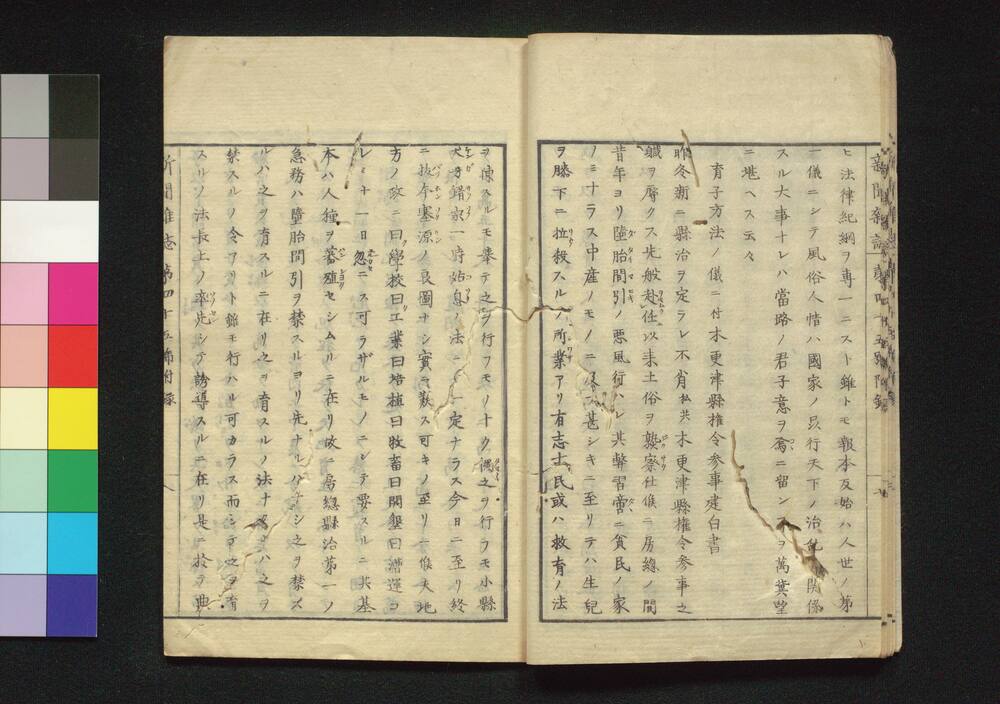 ヒ法律紀綱ヲ専一ニスト雖トモ報本反始ハ人世ノ第
一儀ニシテ風俗人情ハ國家ノ品行天下ノ治化ニ關係
スル大事ナレハ當路ノ君子意ヲ爲ニ留ンコヲ萬冀望
ニ堪ヘス云々
育子方法ノ儀ニ付木更津縣権令参事建白書
昨冬新ニ縣治ヲ定ラレ不肖私共木更津縣権令参事之
職ヲ辱クス先般赴任以来土俗ヲ熟察仕候ニ房總ノ間
昔年ヨリ墮胎間引ノ悪風行ハレ其弊習啻ニ貧民ノ家
ノミナラス中産ノモノニ及ヒ甚シキニ至リテハ生兒
ヲ膝下ニ拉殺スルノ所業アリ有志士民或ハ救育ノ法
ヲ施スルモ挙テ之ヲ行フモノナク偶之ヲ行フモ小縣
犬牙錯家一時姑息ノ法ニシテ一定ナラス今日ニ至リ終
ニ抜本塞源ノ良圖ナシ實ニ歎ス可キノ至リニ候天地
方ノ政ニ曰學校曰工業曰培植曰牧畜曰開墾曰漕運コ
レミナ一日忽ニス可ラザルモノニシテ要スルニ其基
本ハ人種ヲ蕃殖セシムルニ在リ故ニ房總縣治第一ノ
急務ハ墮胎間引ヲ禁スルヨリ先ナルハナシ之ヲ禁ス
ルハ之ヲ育スルニ在リ之ヲ育スルノ法ナケレハ之ヲ
禁スルノ令アリト雖モ行ハル可カラス而シテ之ヲ育
スルノ法長上ノ率先シテ誘導スルニ在リ是ニ於テ典
新聞雜誌 第四十五號附録